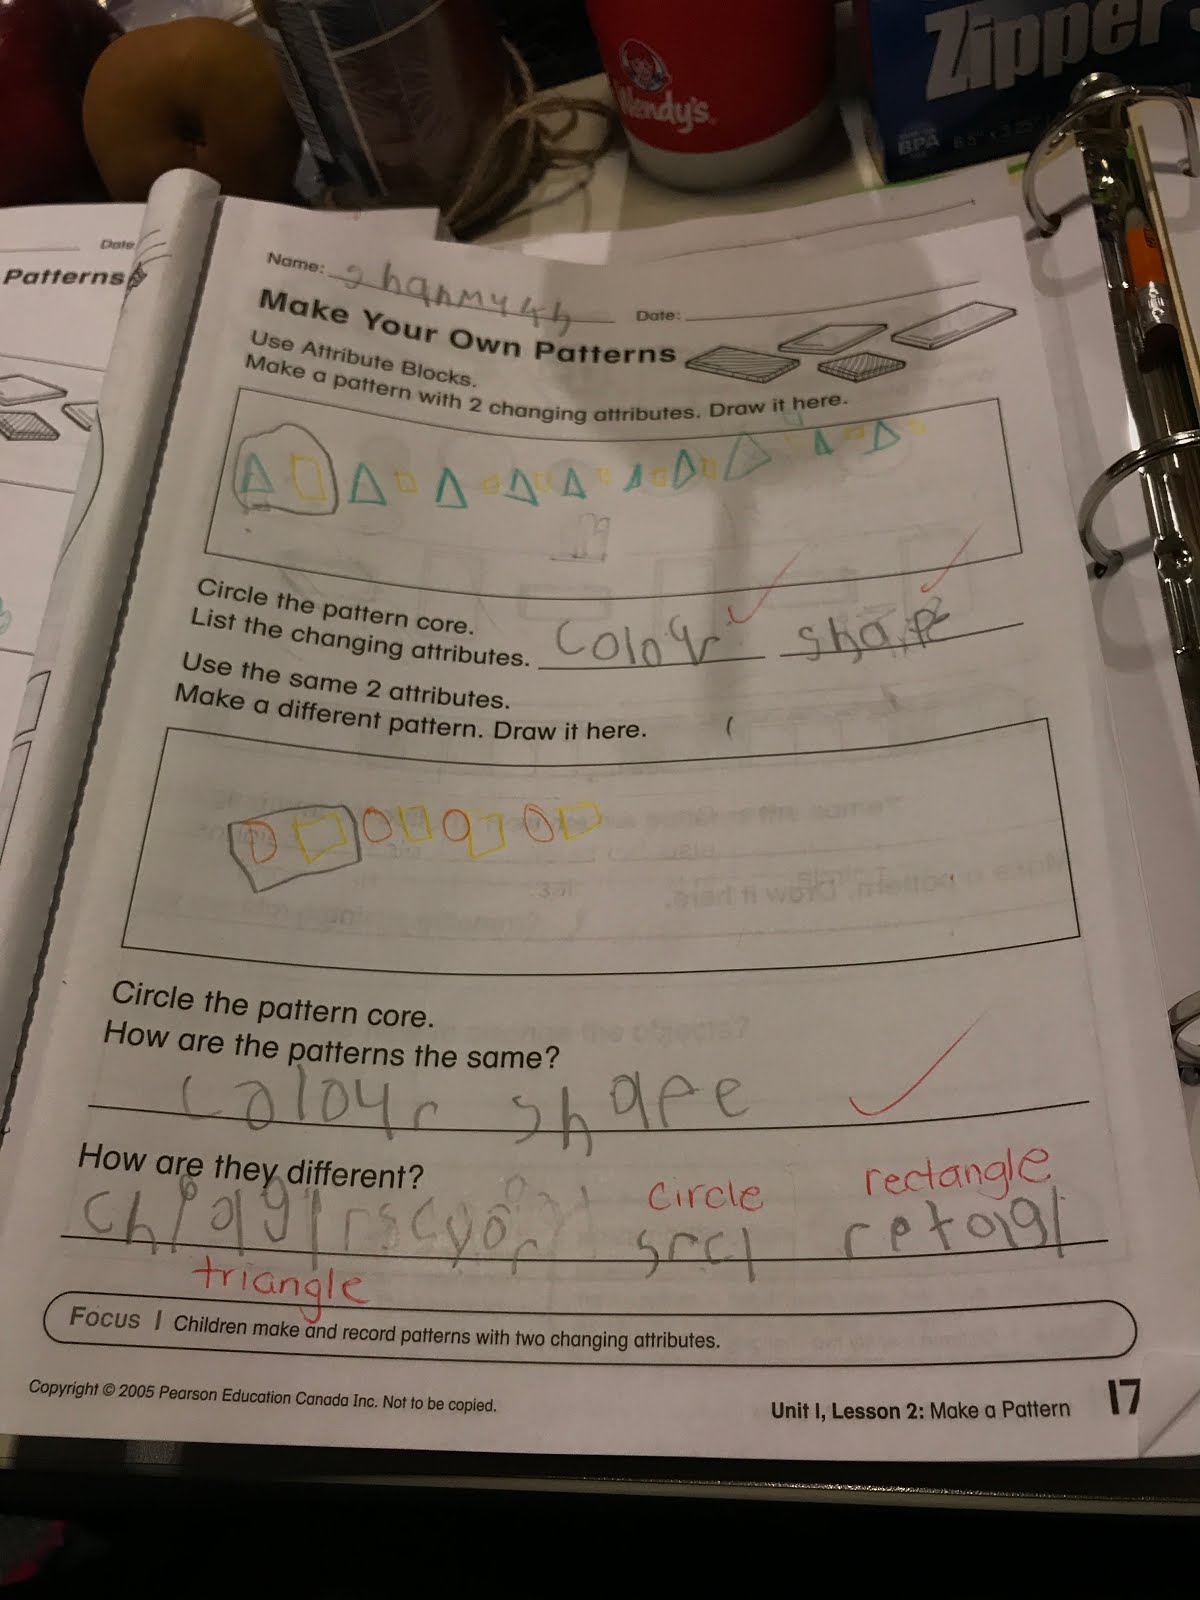 Zipper
Wendy's
BPA
Date
Patterns
Name: shanmyah
Date:
Make Your Own Patterns
Use Attribute Blocks.
Make a pattern with 2 changing attributes. Draw it here.
Circle the pattern core.
List the changing attributes. colour shape
Use the same 2 attributes.
Make a different pattern. Draw it here.
Circle the pattern core.
How are the patterns the same?
colour shape
How are they different?
circle rectangle
srcl retaigl
triangle
Focus | Children make and record patterns with two changing attributes.
Copyright © 2005 Pearson Education Canada Inc. Not to be copied.
Unit 1, Lesson 2: Make a Pattern 17